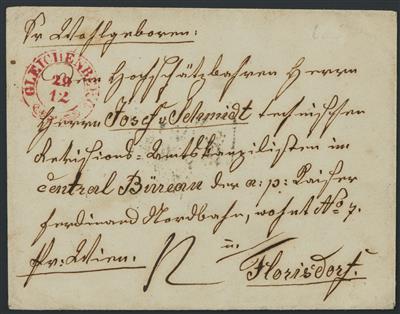 Sr Wohlgeboren:
GLEICHENBERG
29
12
Dem Hochschätzbahren Herrn
Herrn Josef v Schmidt technischen
Revissions-Amtskanzilisten im
Central Bürreau der a: p: Kaiser
Ferdinand Nordbahn, wohnt No 7.
Pr: Wien. in
Florisdorf.